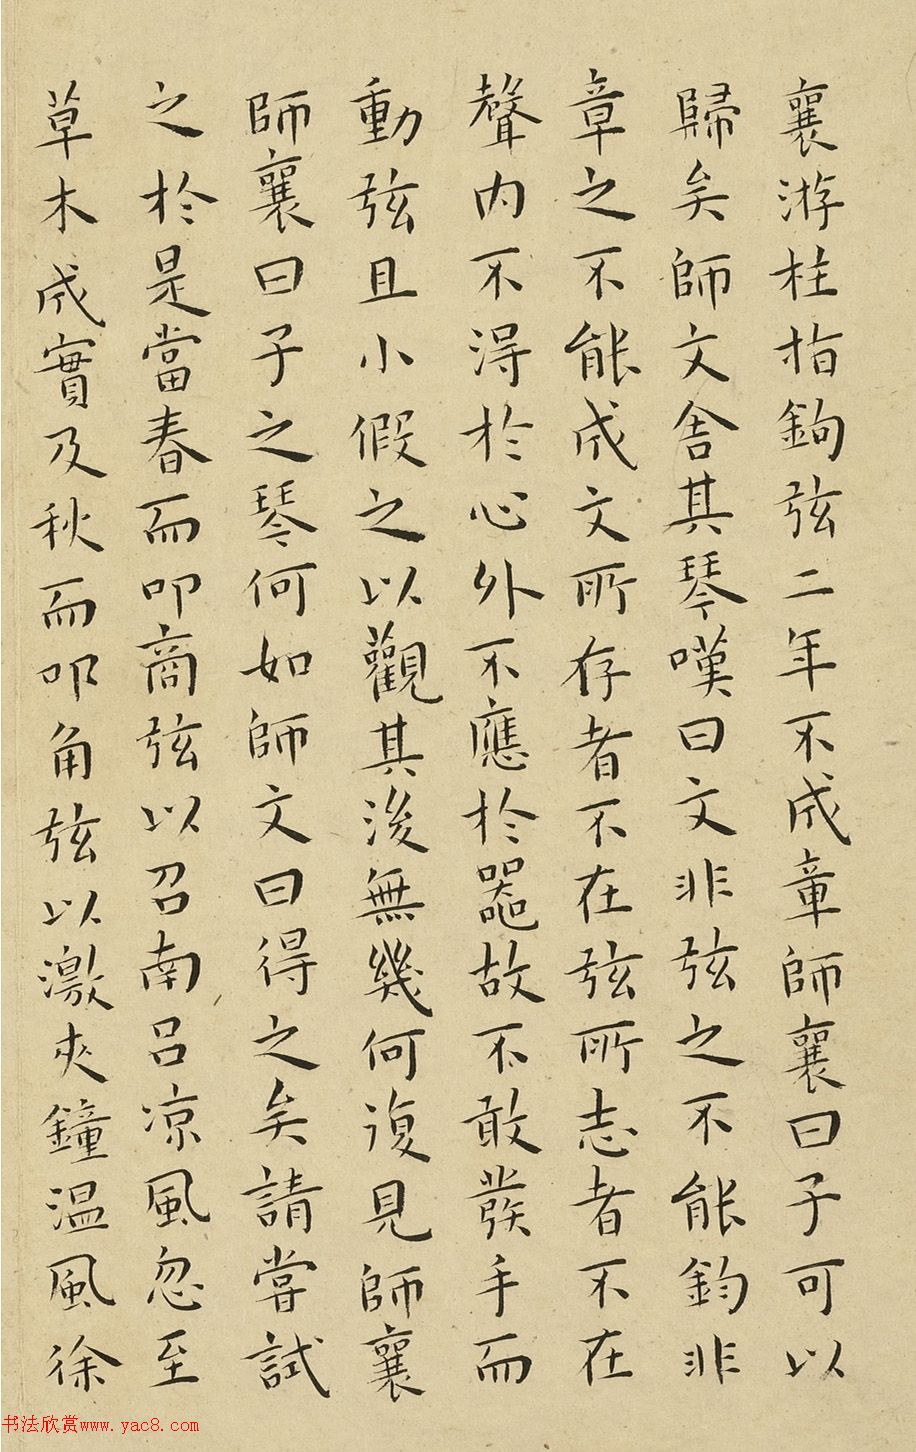 襄游柱指鉤弦二年不成章師襄曰子可以
歸矣師文舍其琴嘆曰文非弦之不能鈞非
章之不能成文所存者不在弦所志者不在
聲內不得於心外不應於器故不敢發手而
動弦且小假之以觀其後無幾何復見師襄
師襄曰子之琴何如師文曰得之矣請嘗試
之於是當春而叩商弦以召南呂凉風忽至
草木成實及秋而叩角弦以激夾鐘温風徐
书法欣赏www.yac8.com